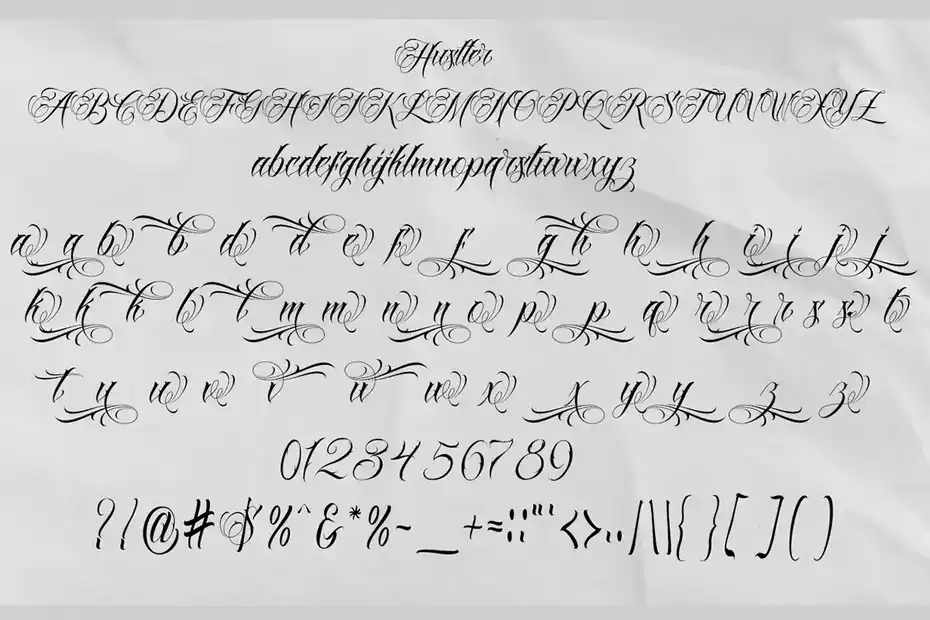 Hustler
ABCDEFGHIJKLMNOPQRSTUVWXYZ
abcdefghijklmnopqrstuvwxyz
a a b b d d e f f g h h h i i j j
k k k l l m m n n o p p q r r r s s t
t u u v v u u x x y y z z
0123456789
?!@#$%^&*%~_+=;:"'<>.,/\|{}[]()